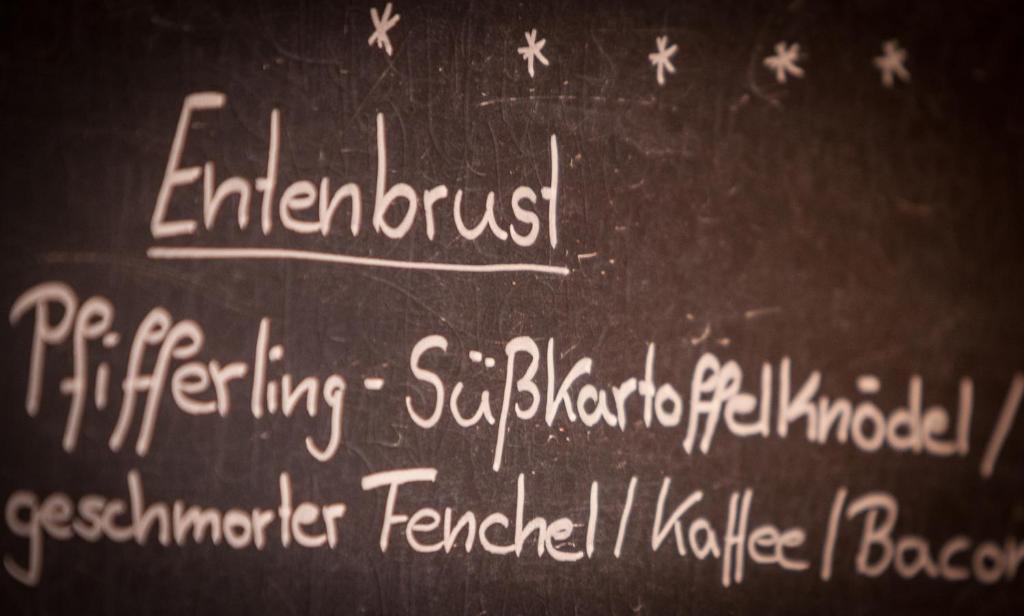 * * * * *
Entenbrust
Pfifferling - Süßkartoffelknödel /
geschmorter Fenchel / Kaffee / Bacon